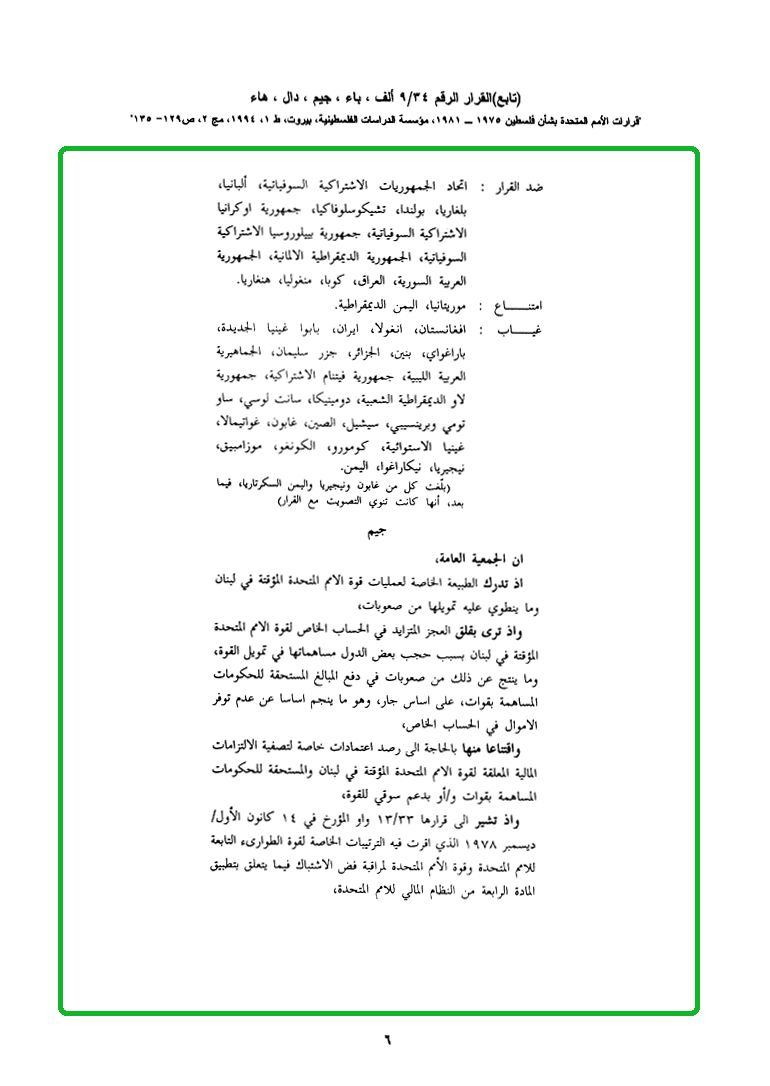 (تابع)القرار الرقم ٩/٣٤ ألف ، باء ، جيم ، دال ، هاء
"قرارات الأمم المتحدة بشأن فلسطين ١٩٧٥ ــ ١٩٨١، مؤسسة الدراسات الفلسطينية، بيروت، ط ١، ١٩٩٤، مج ٢، ص١٢٩– ١٣٥"
ضد القرار : اتحاد الجمهوريات الاشتراكية السوفياتية، ألبانيا،
بلغاريا، بولندا، تشيكوسلوفاكيا، جمهورية اوكرانيا
الاشتراكية السوفياتية، جمهورية بييلوروسيا الاشتراكية
السوفياتية، الجمهورية الديمقراطية الالمانية، الجمهورية
العربية السورية، العراق، كوبا، منغوليا، هنغاريا.
امتنـــــاع : موريتانيا، اليمن الديمقراطية.
غيـــــاب : افغانستان، انغولا، ايران، بابوا غينيا الجديدة،
باراغواي، بنين، الجزائر، جزر سليمان، الجماهيرية
العربية الليبية، جمهورية فيتنام الاشتراكية، جمهورية
لاو الديمقراطية الشعبية، دومينيكا، سانت لوسي، ساو
تومي وبرينسيبي، سيشيل، الصين، غابون، غواتيمالا،
غينيا الاستوائية، كومورو، الكونغو، موزامبيق،
نيجيريا، نيكاراغوا، اليمن.
(بلّغت كل من غابون ونيجيريا واليمن السكرتاريا، فيما
بعد، أنها كانت تنوي التصويت مع القرار)
جيم
ان الجمعية العامة،
اذ تدرك الطبيعة الخاصة لعمليات قوة الامم المتحدة المؤقتة في لبنان
وما ينطوي عليه تمويلها من صعوبات،
واذ ترى بقلق العجز المتزايد في الحساب الخاص لقوة الامم المتحدة
المؤقتة في لبنان بسبب حجب بعض الدول مساهماتها في تمويل القوة،
وما ينتج عن ذلك من صعوبات في دفع المبالغ المستحقة للحكومات
المساهمة بقوات، على اساس جار، وهو ما ينجم اساسا عن عدم توفر
الاموال في الحساب الخاص،
واقتناعا منها بالحاجة الى رصد اعتمادات خاصة لتصفية الالتزامات
المالية المعلقة لقوة الامم المتحدة المؤقتة في لبنان والمستحقة للحكومات
المساهمة بقوات و/أو بدعم سوقي للقوة،
واذ تشير الى قرارها ١٣/٣٣ واو المؤرخ في ١٤ كانون الأول/
ديسمبر ١٩٧٨ الذي اقرت فيه الترتيبات الخاصة لقوة الطوارىء التابعة
للامم المتحدة وقوة الأمم المتحدة لمراقبة فض الاشتباك فيما يتعلق بتطبيق
المادة الرابعة من النظام المالي للامم المتحدة،
٦